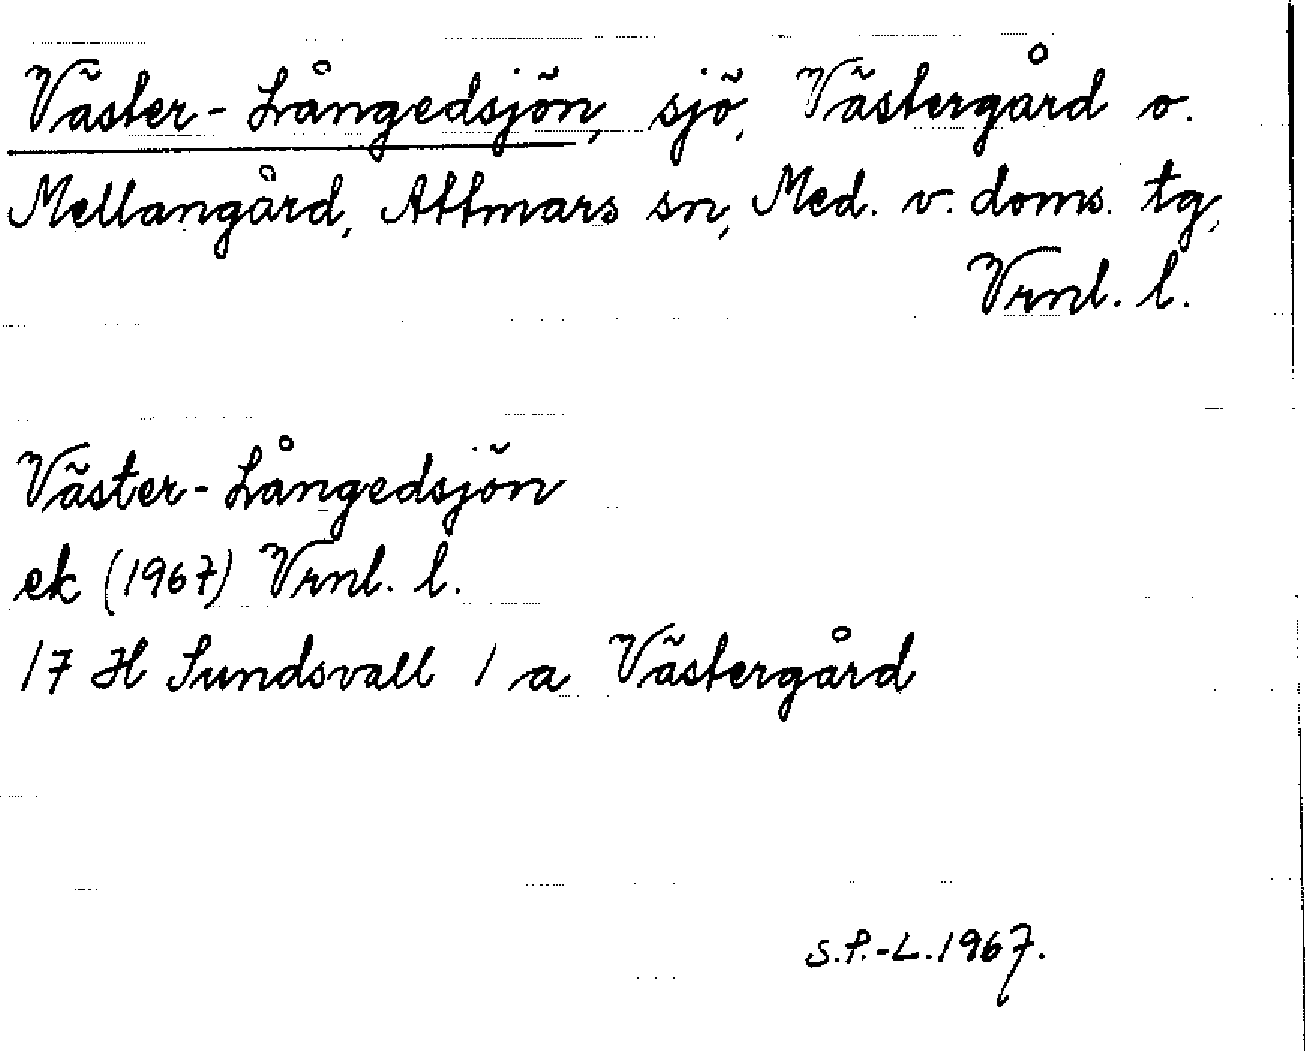 Väster-Långedsjön, sjö, Västergård o.
Mellangård, Attmars sn, Med. v. doms. tg,
Vrnl. l.
Väster-Långedsjön
ek (1967) Vrnl. l.
17 H Sundsvall 1 a Västergård
S.P.-L. 1967.